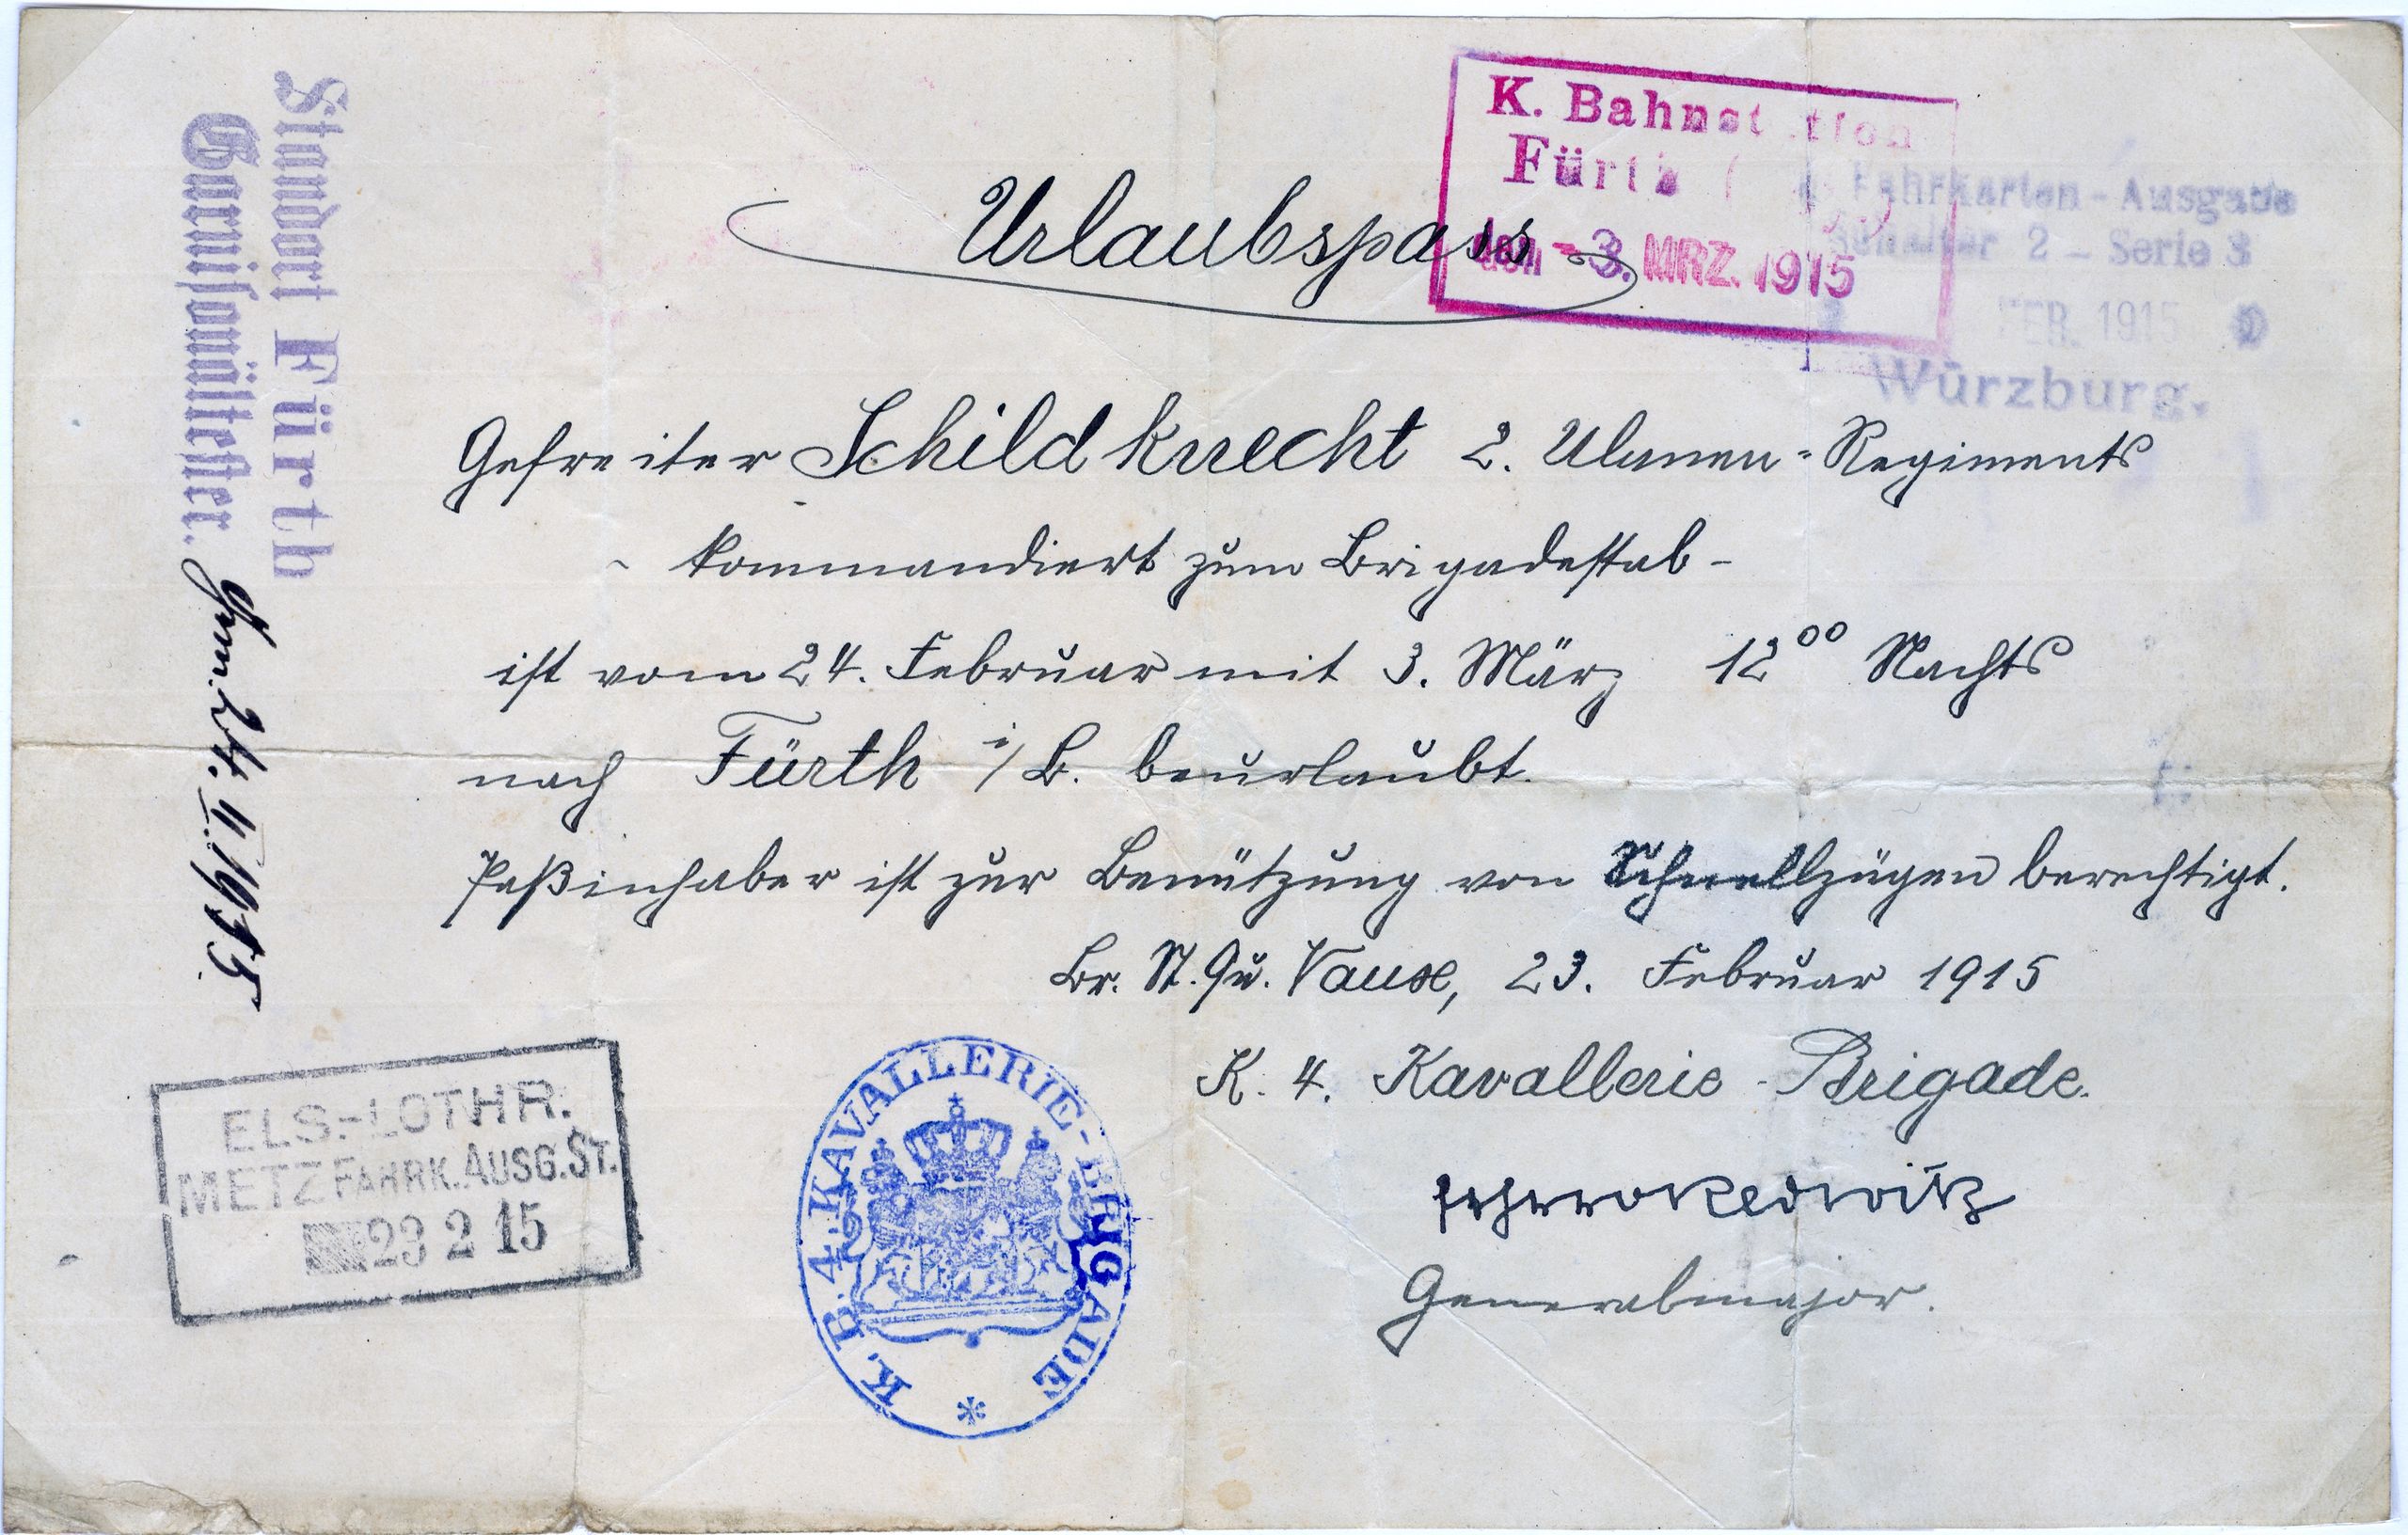 Urlaubspass
K. Bahnstation
Fürth
den -3. MRZ. 1915
Fahrkarten-Ausgabe
Schalter 2 - Serie 3
FEB. 1915
Würzburg.
Standort Fürth
Garnisonältester.
24. II. 1915
Gefreiter Schildknecht 2. Ulanen-Regiments
- kommandiert zum Brigadestab -
ist vom 24. Februar mit 3. März 12⁰⁰ Nachts
nach Fürth i/B. beurlaubt.
Paßinhaber ist zur Benützung von Schnellzügen berechtigt.
Br. St. Qu. Vaux, 23. Februar 1915
K. 4. Kavallerie-Brigade.
Generalmajor.
K. B. 4. KAVALLERIE-BRIGADE *
ELS.-LOTHR.
METZ FAHRK. AUSG. ST.
23 2 15